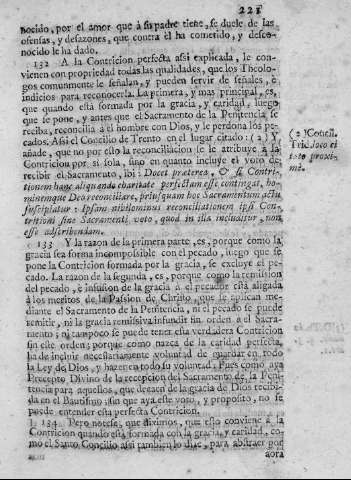 221
nocido, por el amor que à su padre tiene, se duele de las
ofensas, y desazones, que contra èl ha cometido, y desco-
nocido le ha dado.
132 A la Contricion perfecta assi explicada, le con-
vienen con propriedad todas las qualidades, que los Theolo-
gos comunmente le señalan, y pueden servir de señales, è
indicios para reconocerla. La primera, y mas principal, es,
que quando està formada por la gracia, y caridad, luego
que se pone, y antes que el Sacramento de la Penitencia se
reciba, reconcilia al hombre con Dios, y le perdona los pe-
cados. Assi el Concilio de Trento en el lugar citado: (2) Y
añade, que no por esso la reconciliacion se le atribuye à la
Contricion por si sola, sino en quanto incluye el voto de
recibir el Sacramento, ibi: Docet præterea, & si Contri-
tionem hanc aliquando charitate perfectam esse contingat, ho-
minemque Deo reconciliare, priusquam hoc Sacramentum actu
suscipiatur: Ipsam nihilominus reconciliationem ipsi Con-
tritioni sine Sacramenti voto, quod in illa includitur, non
esse adscribendam.
(2) Concil.
Trid. loco ci
tato proxi-
mè.
133 Y la razon de la primera parte, es, porque como la
gracia sea forma incompossible con el pecado, luego que se
pone la Contricion formada por la gracia, se excluye el pe-
cado. La razon de la segunda, es, porque como la remission
del pecado, è infusion de la gracia al pecador està aligada
à los meritos de la Passion de Christo, que se aplican me-
diante el Sacramento de la Penitencia, ni el pecado se puede
remitir, ni la gracia remissiva infundir sin orden à el Sacra-
mento; ni tampoco se puede tener esta verdadera Contricion
sin este orden; porque como nazca de la caridad perfecta,
ha de incluir necessariamente voluntad de guardar en todo
la Ley de Dios, y hazer en todo su voluntad. Pues como aya
Precepto Divino de la recepcion del Sacramento de la Peni-
tencia para aquellos, que decaen de la gracia de Dios recibi-
da en el Bautismo; sin que aya este voto, y proposito, no se
puede entender esta perfecta Contricion.
134 Pero notese, que diximos, que esto conviene à la
Contricion quando està formada con la gracia, y caridad, co-
mo el Santo Concilio assi tambien lo dize, para abstraer por
aora